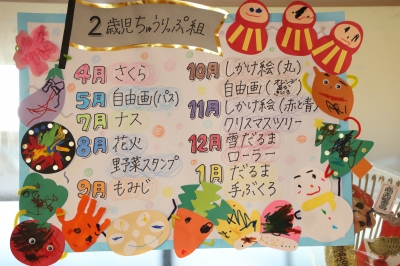 2歳児ちゅうりっぷ組
4月 さくら
5月 自由画(パス)
7月 ナス
8月 花火
野菜スタンプ
9月 もみじ
10月 しかけ絵(丸)
自由画
11月 しかけ絵(赤と青)
クリスマスツリー
12月 雪だるま
ローラー
1月 だるま
手ぶくろ